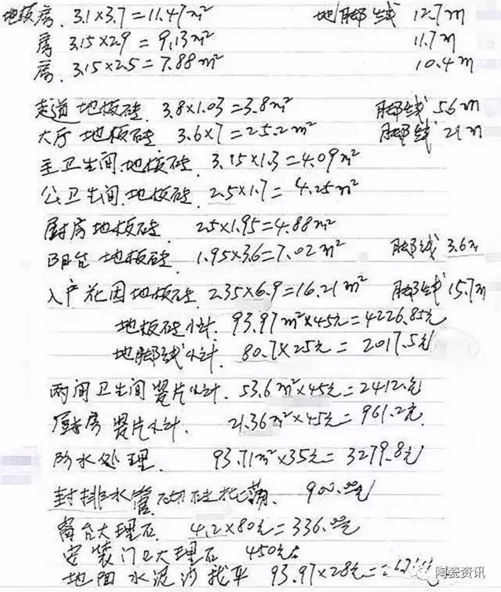 地板房. 3.1×3.7=11.47m² 地脚线 12.7m
房. 3.15×2.9=9.13m² 11.7m
房. 3.15×2.5=7.88m² 10.4m
走道地板砖. 3.8×1.03=3.8m² 脚线 5.6m
大厅地板砖. 3.6×7=25.2m² 脚线 21m
主卫生间地板砖. 3.15×1.3=4.09m²
公卫生间地板砖. 2.5×1.7=4.25m²
厨房地板砖 2.5×1.95=4.88m²
阳台地板砖. 1.95×3.6=7.02m² 脚线 3.6m
入户花园地板砖. 2.35×6.9=16.21m² 脚线 15.7m
地板砖小计. 93.97m²×45元=4226.85元
地脚线小计. 80.7×25元=2017.5元
两间卫生间竖片小计. 53.6m²×45元=2412.元
厨房竖片小计. 21.36m²×45元=961.2元
防水处理. 93.71m²×35元=3279.8元
封排水管 900.00元
窗台大理石 4.2×80元=336.00元
安装门口大理石 450元
地面水泥沙找平 93.97×28元=
陶瓷资讯